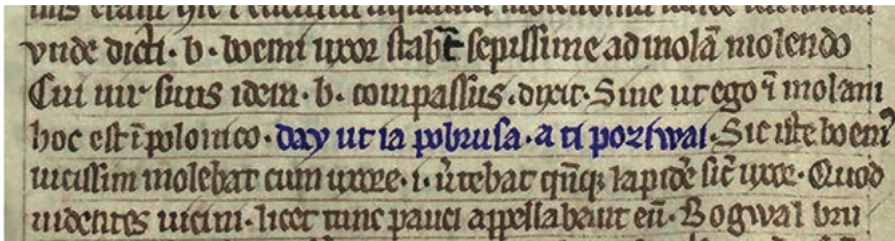 vnde dicti · b · boemi uxor stabat sepissime ad molā molendo
Cui uir suus idem · b · compassus · dixit · Sine ut ego ī molam
hoc est ī polonico · day ut ia pobrusa · a ti poziwai · Sic iste boem9
uicissim molebat cum uxore · i · ūtebat qn̄q; lapidē sic̄ uxor · Quod
uidentes uicini · licet tunc pauci appellabant eū · Bogwal bru